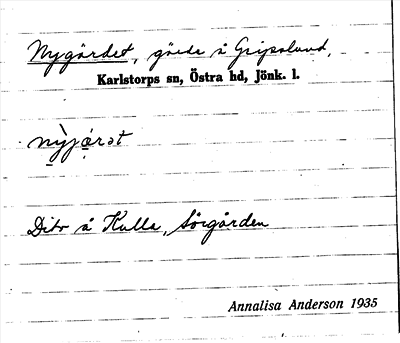 Nygärdet, gärde å Gripslund,
Karlstorps sn, Östra hd, Jönk. l.
nỳjæ̣rət
Dito å Kulla, Sörgården
Annalisa Anderson 1935